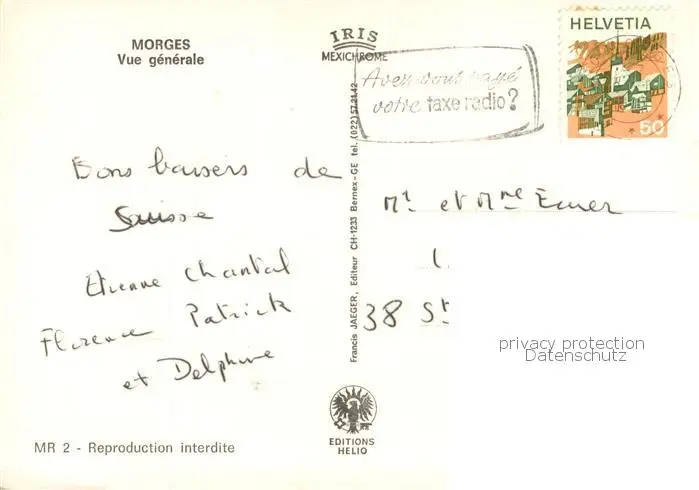 MORGES
Vue générale
IRIS
MEXICHROME
Avez-vous payé
votre taxe radio?
HELVETIA
50
Bons baisers de
Suisse
Etienne Chantal
Florence Patrick
et Delphine
Francis JAEGER, Editeur CH-1233 Bernex-GE tel. (022) 57.21.42
Mr et Mme
38 St
privacy protection
Datenschutz
EDITIONS
HELIO
MR 2 - Reproduction interdite